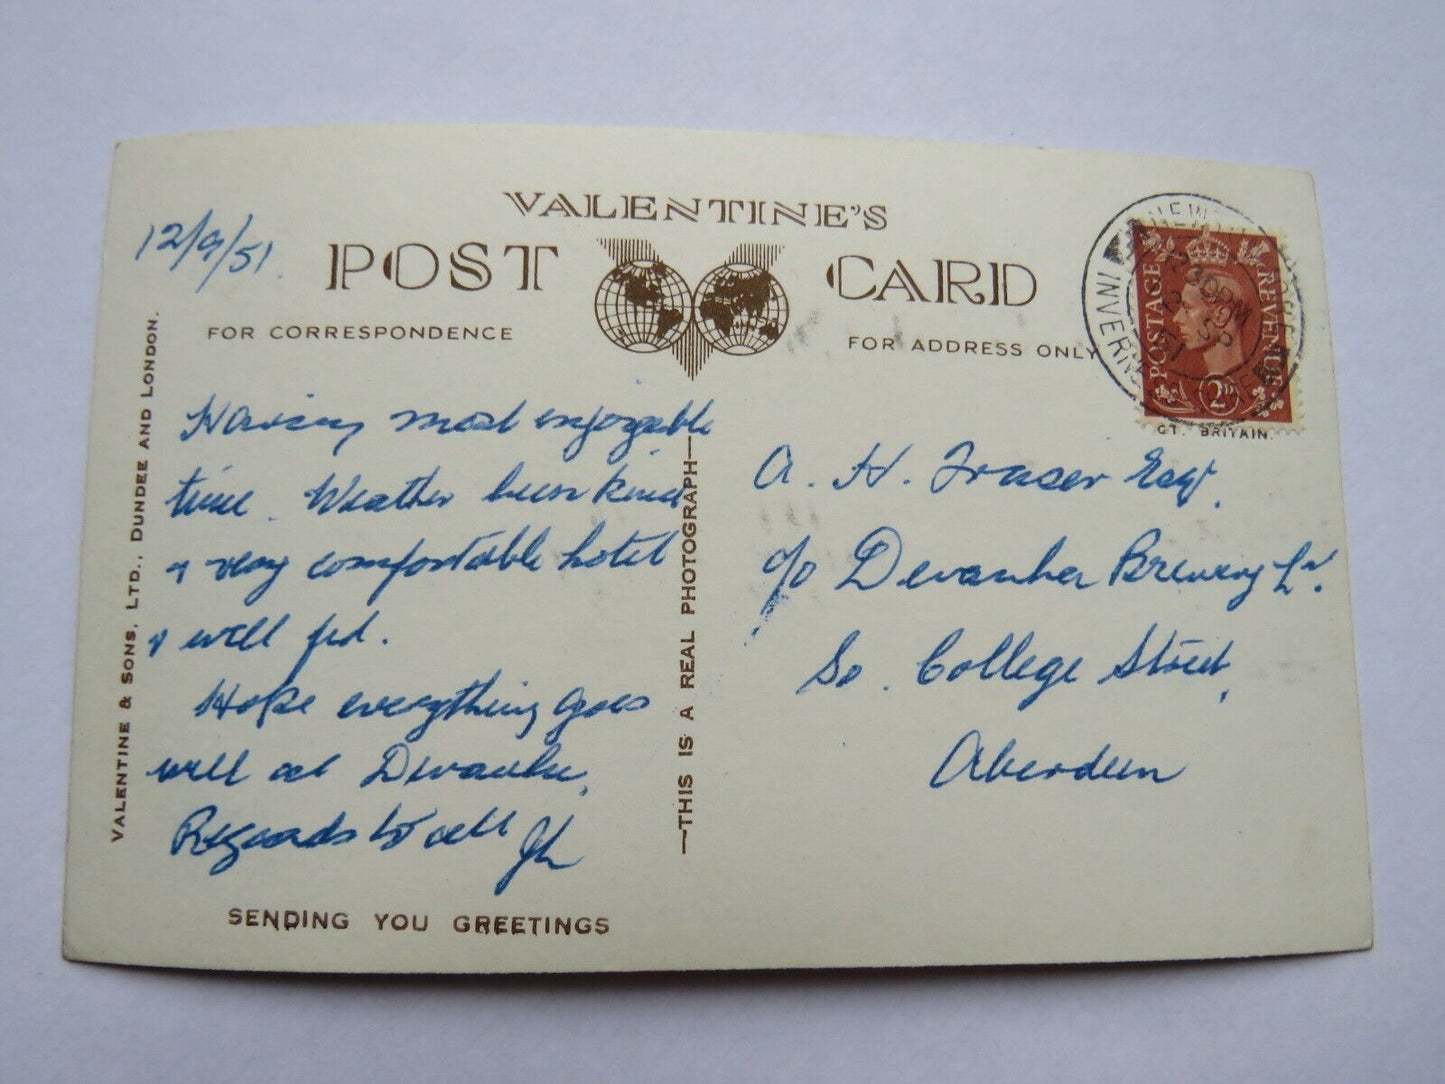 VALENTINE'S
POST CARD
FOR CORRESPONDENCE
FOR ADDRESS ONLY
12/9/51.
Having most enjoyable
time. Weather been kind
& very comfortable hotel
& well fed.
Hope everything goes
well at Devanha.
Regards to all
SENDING YOU GREETINGS
VALENTINE & SONS, LTD., DUNDEE AND LONDON.
—THIS IS A REAL PHOTOGRAPH—
POSTAGE
REVENUE
2D
INVERN
30PM
12 SP
51
GT. BRITAIN.
A. H. Fraser Esq.
c/o Devanha Brewery Ld.
So. College Street,
Aberdeen